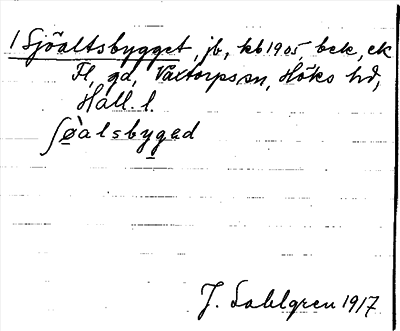 1 Sjöaltsbygget, jb, kb 1905 bek, ek
Fl, gd, Växtorps sn, Höks hd,
Hall. l.
ʃø̀alsbygəd
J. Sahlgren 1917